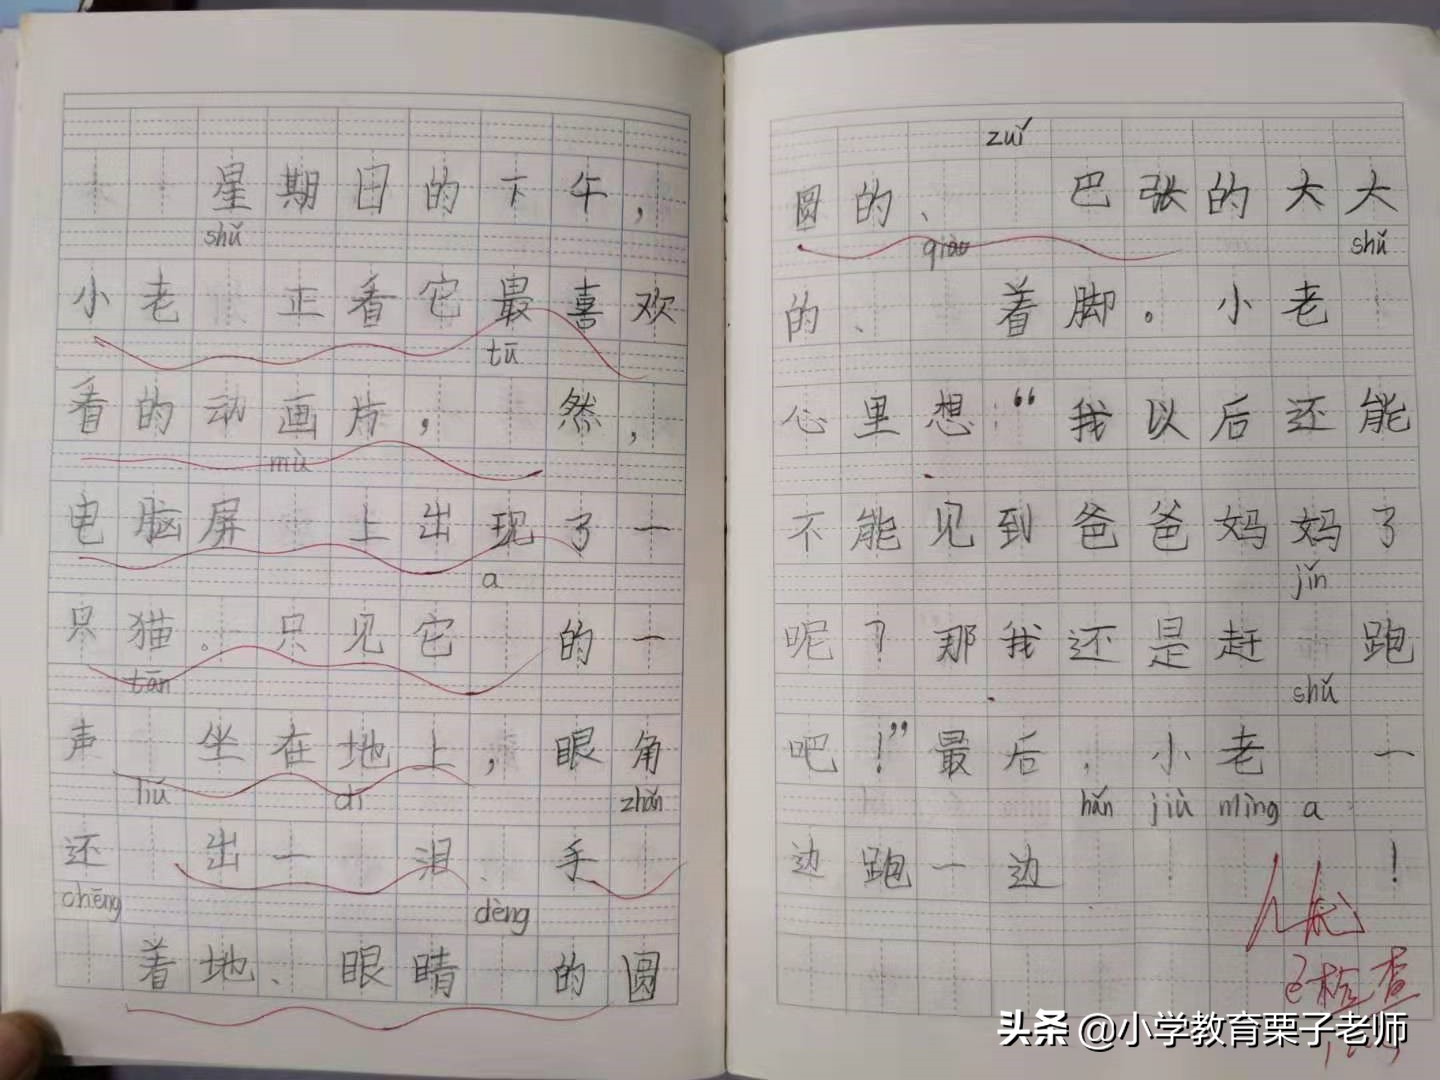 星期日的下午，
shǔ
小老 正看它最喜欢
tū
看的动画片， 然，
mù
电脑屏 上出现了一
a
只猫。只见它 的一
tān
声 坐在地上，眼角
liú dī zhǎn
还 出一 泪、手
chēng dèng
着地、眼睛 的圆
zuǐ
圆的、 巴张的大大
qiào shǔ
的、 着脚。小老
心里想：“我以后还能
不能见到爸爸妈妈了
jǐn
呢？那我还是赶 跑
shǔ
吧！”最后，小老 一
hǎn jiù mìng a
边跑一边 ！
已检查
头条 @小学教育栗子老师